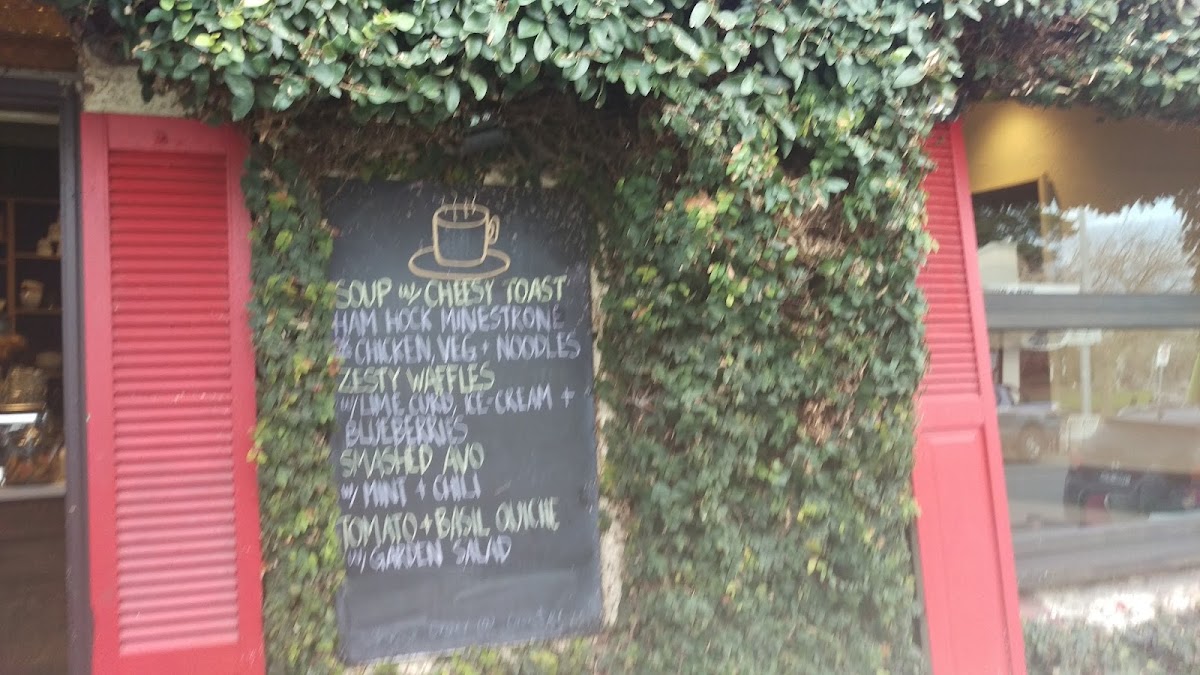 SOUP w/ CHEESY TOAST
HAM HOCK MINESTRONE
CHICKEN, VEG + NOODLES
ZESTY WAFFLES
w/ LIME CURD, ICE-CREAM +
BLUEBERRIES
SMASHED AVO
w/ MINT + CHILI
TOMATO + BASIL QUICHE
w/ GARDEN SALAD